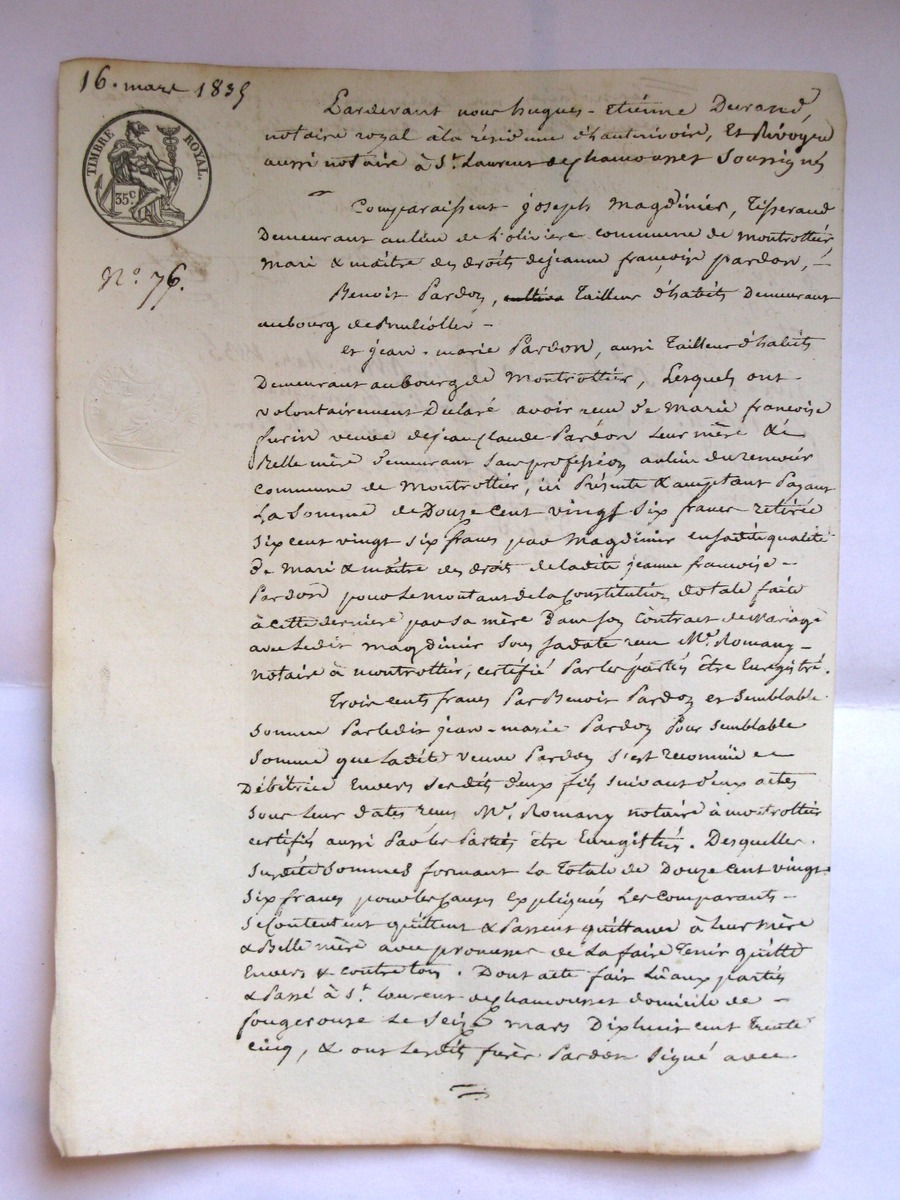 16. mars 1835
TIMBRE ROYAL.
35c
No. 76.
Pardevant nous hugues-Etienne Durand,
notaire royal à la résidence d'hauterivoire, Et Rivoyre
aussi notaire à St. Laurent de chamousset Soussignés
Comparaissent joseph Magdinier, Tisserand
Demeurant au lieu de l'olivière commune de montrottier,
Mari & maître des droits de jeanne françoise pardon,
Benoit Pardon, Tailleur d'habits Demeurant
au bourg de Brulliolle
et jean-marie Pardon, aussi Tailleur d'habits
Demeurant au bourg de Montrottier, Lesquels ont
volontairement Déclaré avoir reçu de Marie françoise
veuve de jean Claude Pardon Leur mère &
Belle mère demeurant sans profession au lieu du
commune de Montrottier, ici Présente & acceptant Payant
La Somme de Douze Cent vingt Six francs retirée
Six cent vingt six francs par Magdinier en sadite qualité
de Mari & maître des droits de ladite jeanne françoise
Pardon pour le montant de la Constitution dotale faite
à cette dernière par sa mère Dans son Contrat de Mariage
avec Ledit magdinier Sous sa date reçu Me. Romany
notaire à montrottier, certifié Par les parties être Enregistré.
Trois cents francs Par Benoit Pardon et Semblable
Somme Par ledit jean-marie Pardon Pour Semblable
Somme que Ladite veuve Pardon s'est reconnue
Débitrice Envers Sesdits deux fils suivant deux actes
Sous Leur dates reçus Me. Romany notaire à montrottier
certifiés aussi Par les Parties être Enregistrés. Desquelles
Susdites Sommes formant La Totale de Douze Cent vingt
Six francs pour les Causes Expliquées Les Comparants
Se Contentent quittent & Passent quittance à Leur mère
& Belle mère avec promesse de La faire Tenir quitte
Envers & contre tous. Dont acte fait Lu aux parties
& Passé à St. Laurent de chamousset domicile de
Fougerouse Le Seize mars Dix huit cent Trente
cinq, & ont Lesdits frères Pardon Signé avec